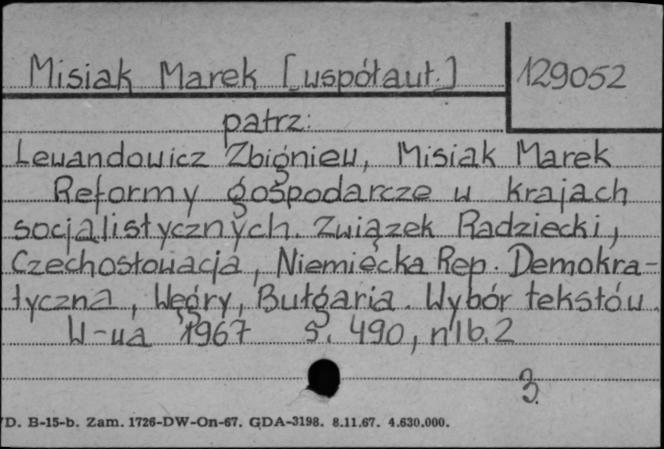 Misiak Marek [współaut.] 129052
patrz:
Lewandowicz Zbigniew, Misiak Marek
Reformy gospodarcze w krajach
socjalistycznych. Związek Radziecki,
Czechosłowacja, Niemiecka Rep. Demokra-
tyczna, Węgry, Bułgaria. Wybór tekstów.
W-wa 1967 s. 490, nlb. 2
3.
D. B-15-b. Zam. 1726-DW-On-67. GDA-3198. 8.11.67. 4.630.000.